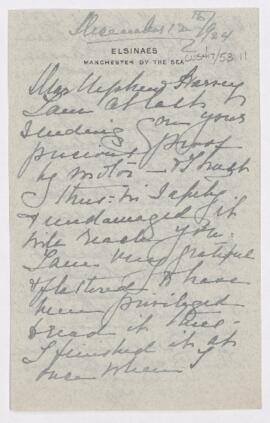 December 12th/24
CUS4/7/53.11
ELSINAES
MANCHESTER BY THE SEA
Dear Nephew Harvey
I am at last
sending on your
precious proof
by motor — & I trust
& thus in safety
& undamaged it
will reach you.
I am very grateful
& flattered to have
been privileged
to read it thus —
I finished it at
once when I